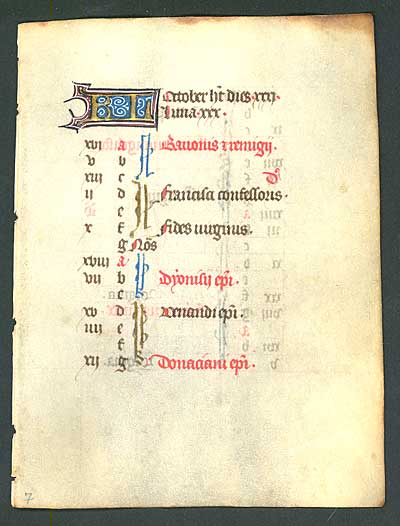 KL October ht dies xxxi.
Luna xxx.
xvi a Bauonis z remigij.
v b
xiii c
ii d Francisci confessoris.
e
x f Fides uirginis.
g Nōs
xviii a
vii b Dyonisij epi.
c
xv d Venandi epi.
iiii e
f
xii g Donaciani epi.
7